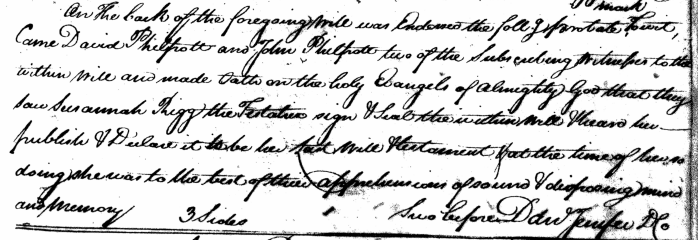 mark
On the back of the foregoing Will was Endorsed the follg probate Towit,
Came David Philpott and John Philpott two of the Subscribing Witnesses to the
within Will and made Oath on the holy Evangels of Almighty God that they
saw Susannah Trigg the Testatrix sign & seal the within Will & heard her
publish & Declare it to be her last Will & testament that at the time of her so
doing she was to the best of their apprehensions of sound & disposing mind
and Memory 3 Sides Swo before Danl Jenifer